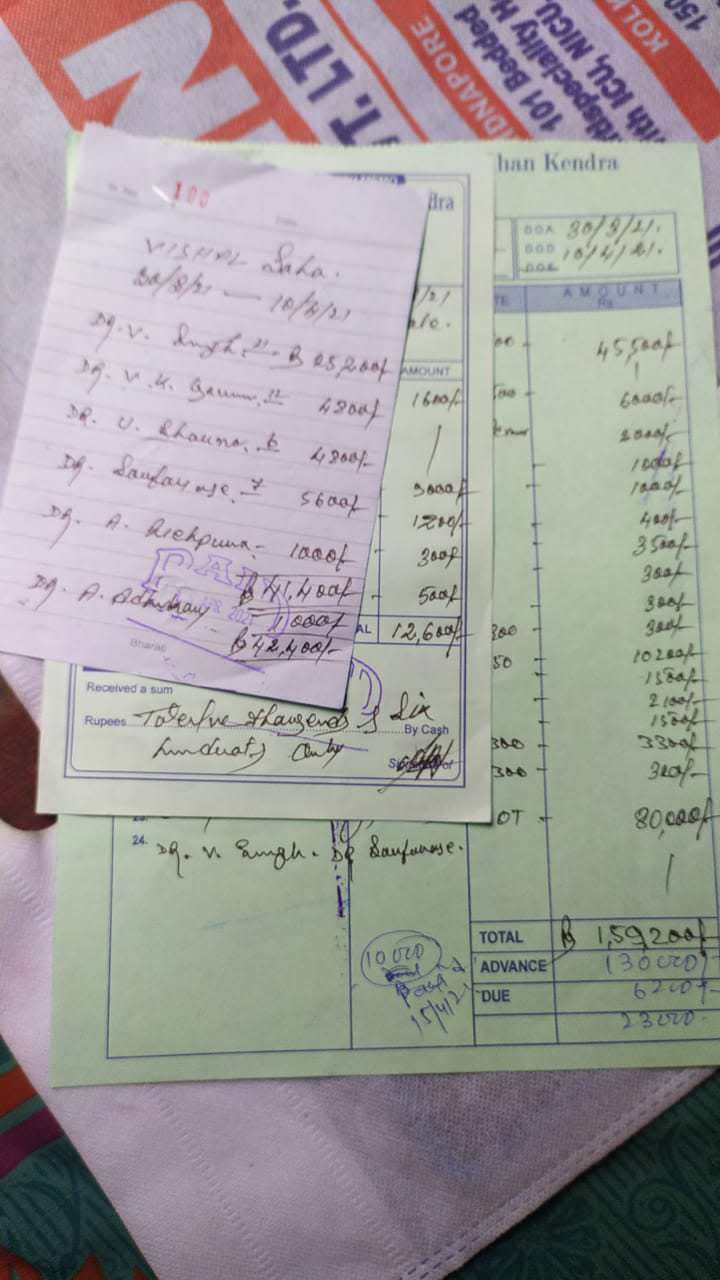 T. LTD.
KOLK
MIDNAPORE
101 Bedded
with ICU, NICU.
150
100
VISHAL Saha.
30/3/21 — 10/4/21
DR. V. Singh. 21 - ₨ 25,200/-
DR. V. K. 12 4800/-
DR. U. 6 4800/-
DR. 7 5600/-
DR. A. 1000/-
₨ 41,400/-
DR. A. Adhikary 1000/-
₨ 42,400/-
PAID
Bharati
dra
/21
AMOUNT
1600/-
3000/-
1200/-
300/-
500/-
AL 12,600/-
Received a sum
Rupees Twelve thousands & Six By Cash
hundreds only
han Kendra
D.O.A 30/3/21.
D.O.D 10/4/21.
D.O.B
TE AMOUNT
Rs.
00 - 45,500/-
500 - 6000/-
8000/-
- 1000/-
- 1000/-
- 400/-
- 3500/-
- 300/-
- 300/-
300 - 300/-
50 - 10200/-
- 1500/-
- 2100/-
- 1500/-
300 - 3300/-
300 - 300/-
OT - 80,000/-
24. DR. V. Singh. DR
TOTAL ₨ 1,59,200/-
ADVANCE 130000/-
DUE 6200/-
23000-
10000
Paid
15/4/21